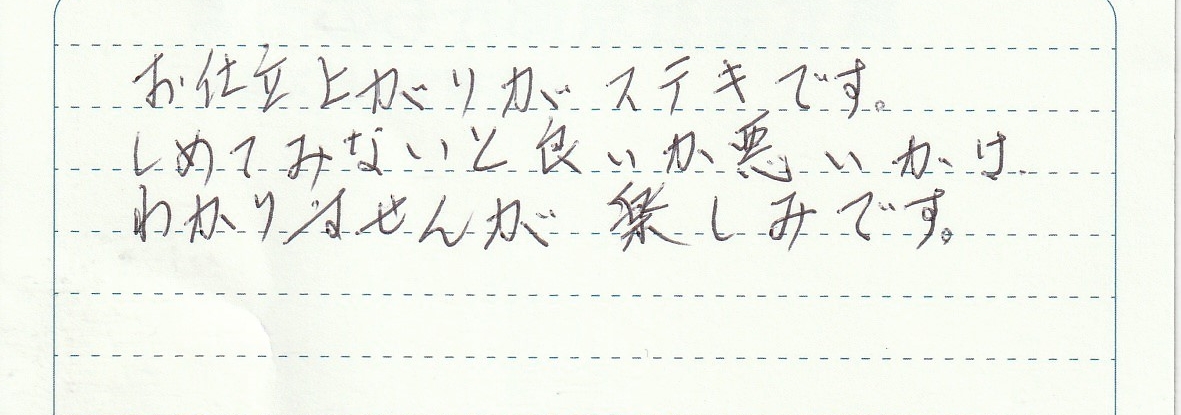 お仕立上がりがステキです。
しめてみないと良いか悪いかは
わかりませんが楽しみです。